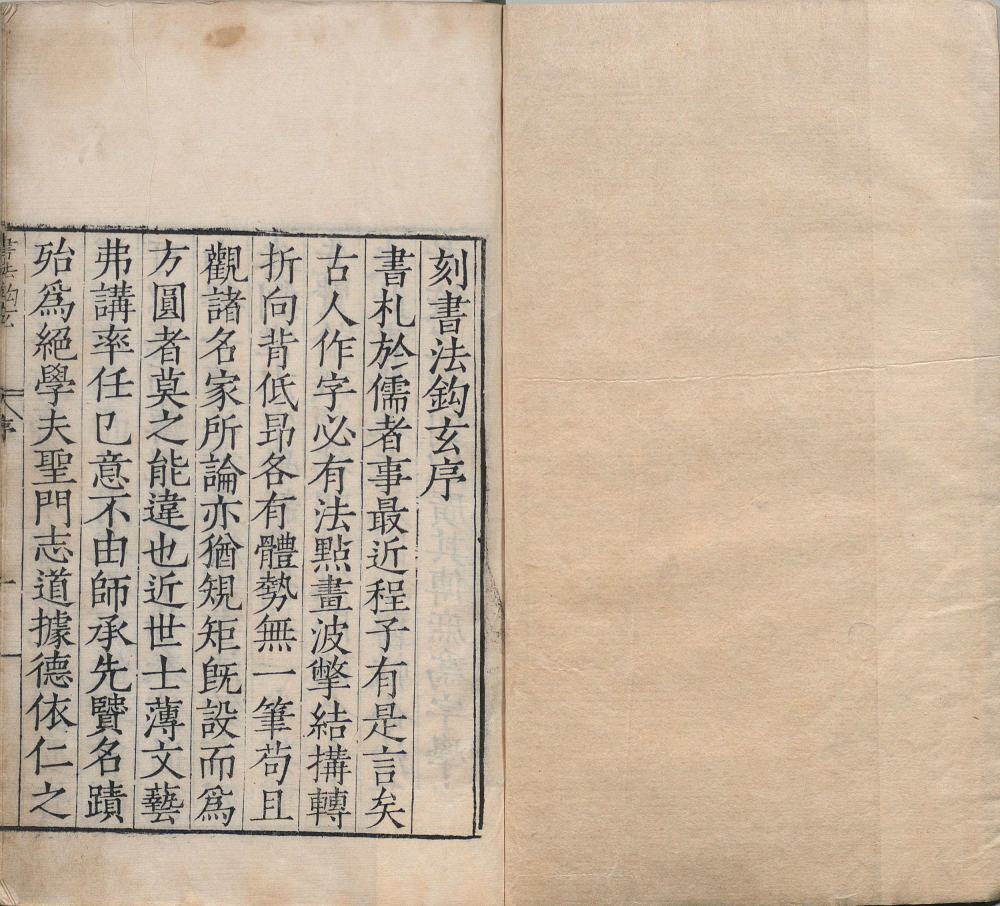 刻書法鈎玄序
書札於儒者事最近程子有是言矣
古人作字必有法點畫波撆結搆轉
折向背低昂各有體勢無一筆茍且
觀諸名家所論亦猶規矩旣設而爲
方圓者莫之能違也近世士薄文藝
弗講率任已意不由師承先贒名蹟
殆爲絕學夫聖門志道據德依仁之
書法鈎玄
序
一